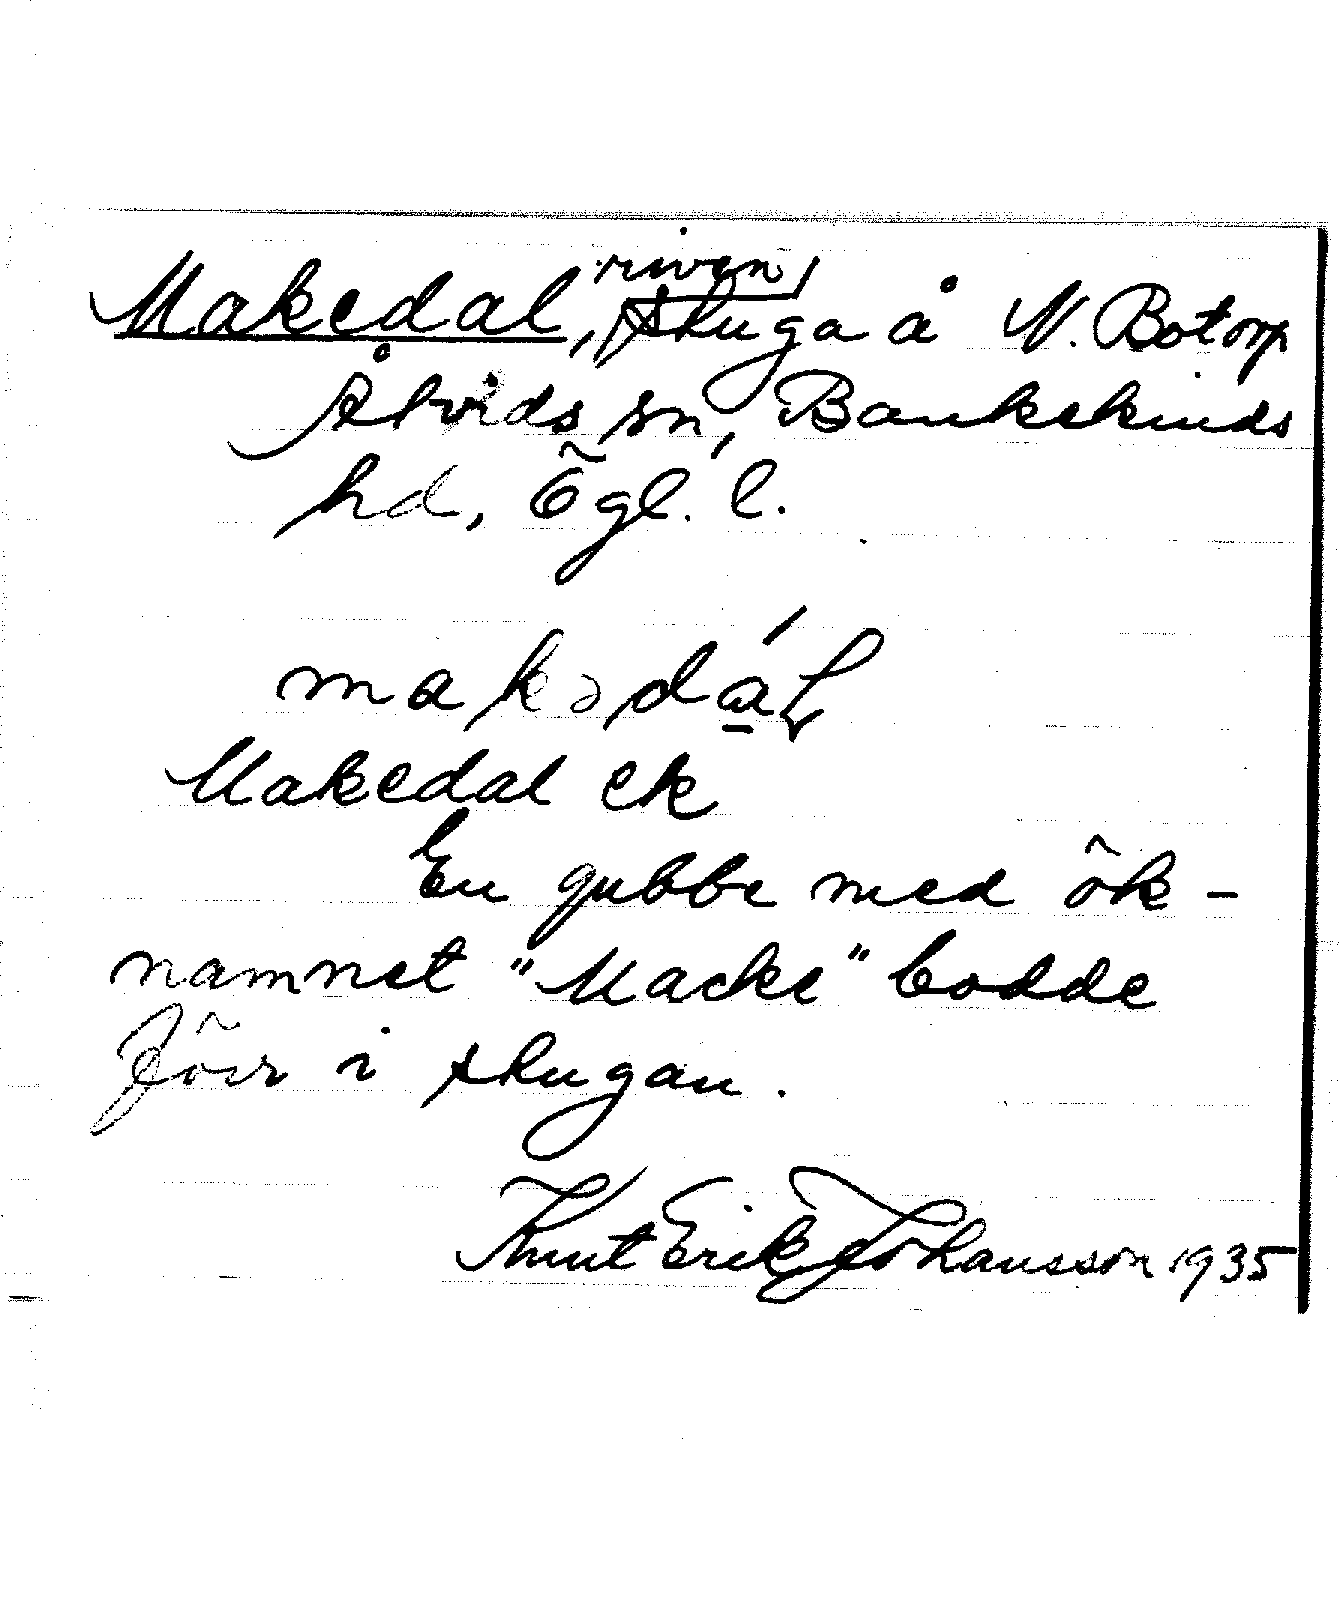 Makedal, riven stuga å N. Botorp
Åtvids sn, Bankekinds
hd, Ögl. l.
makədáɫ
Makedal ek
En gubbe med ök-
namnet "Macke" bodde
förr i stugan.
Knut Erik Johansson 1935